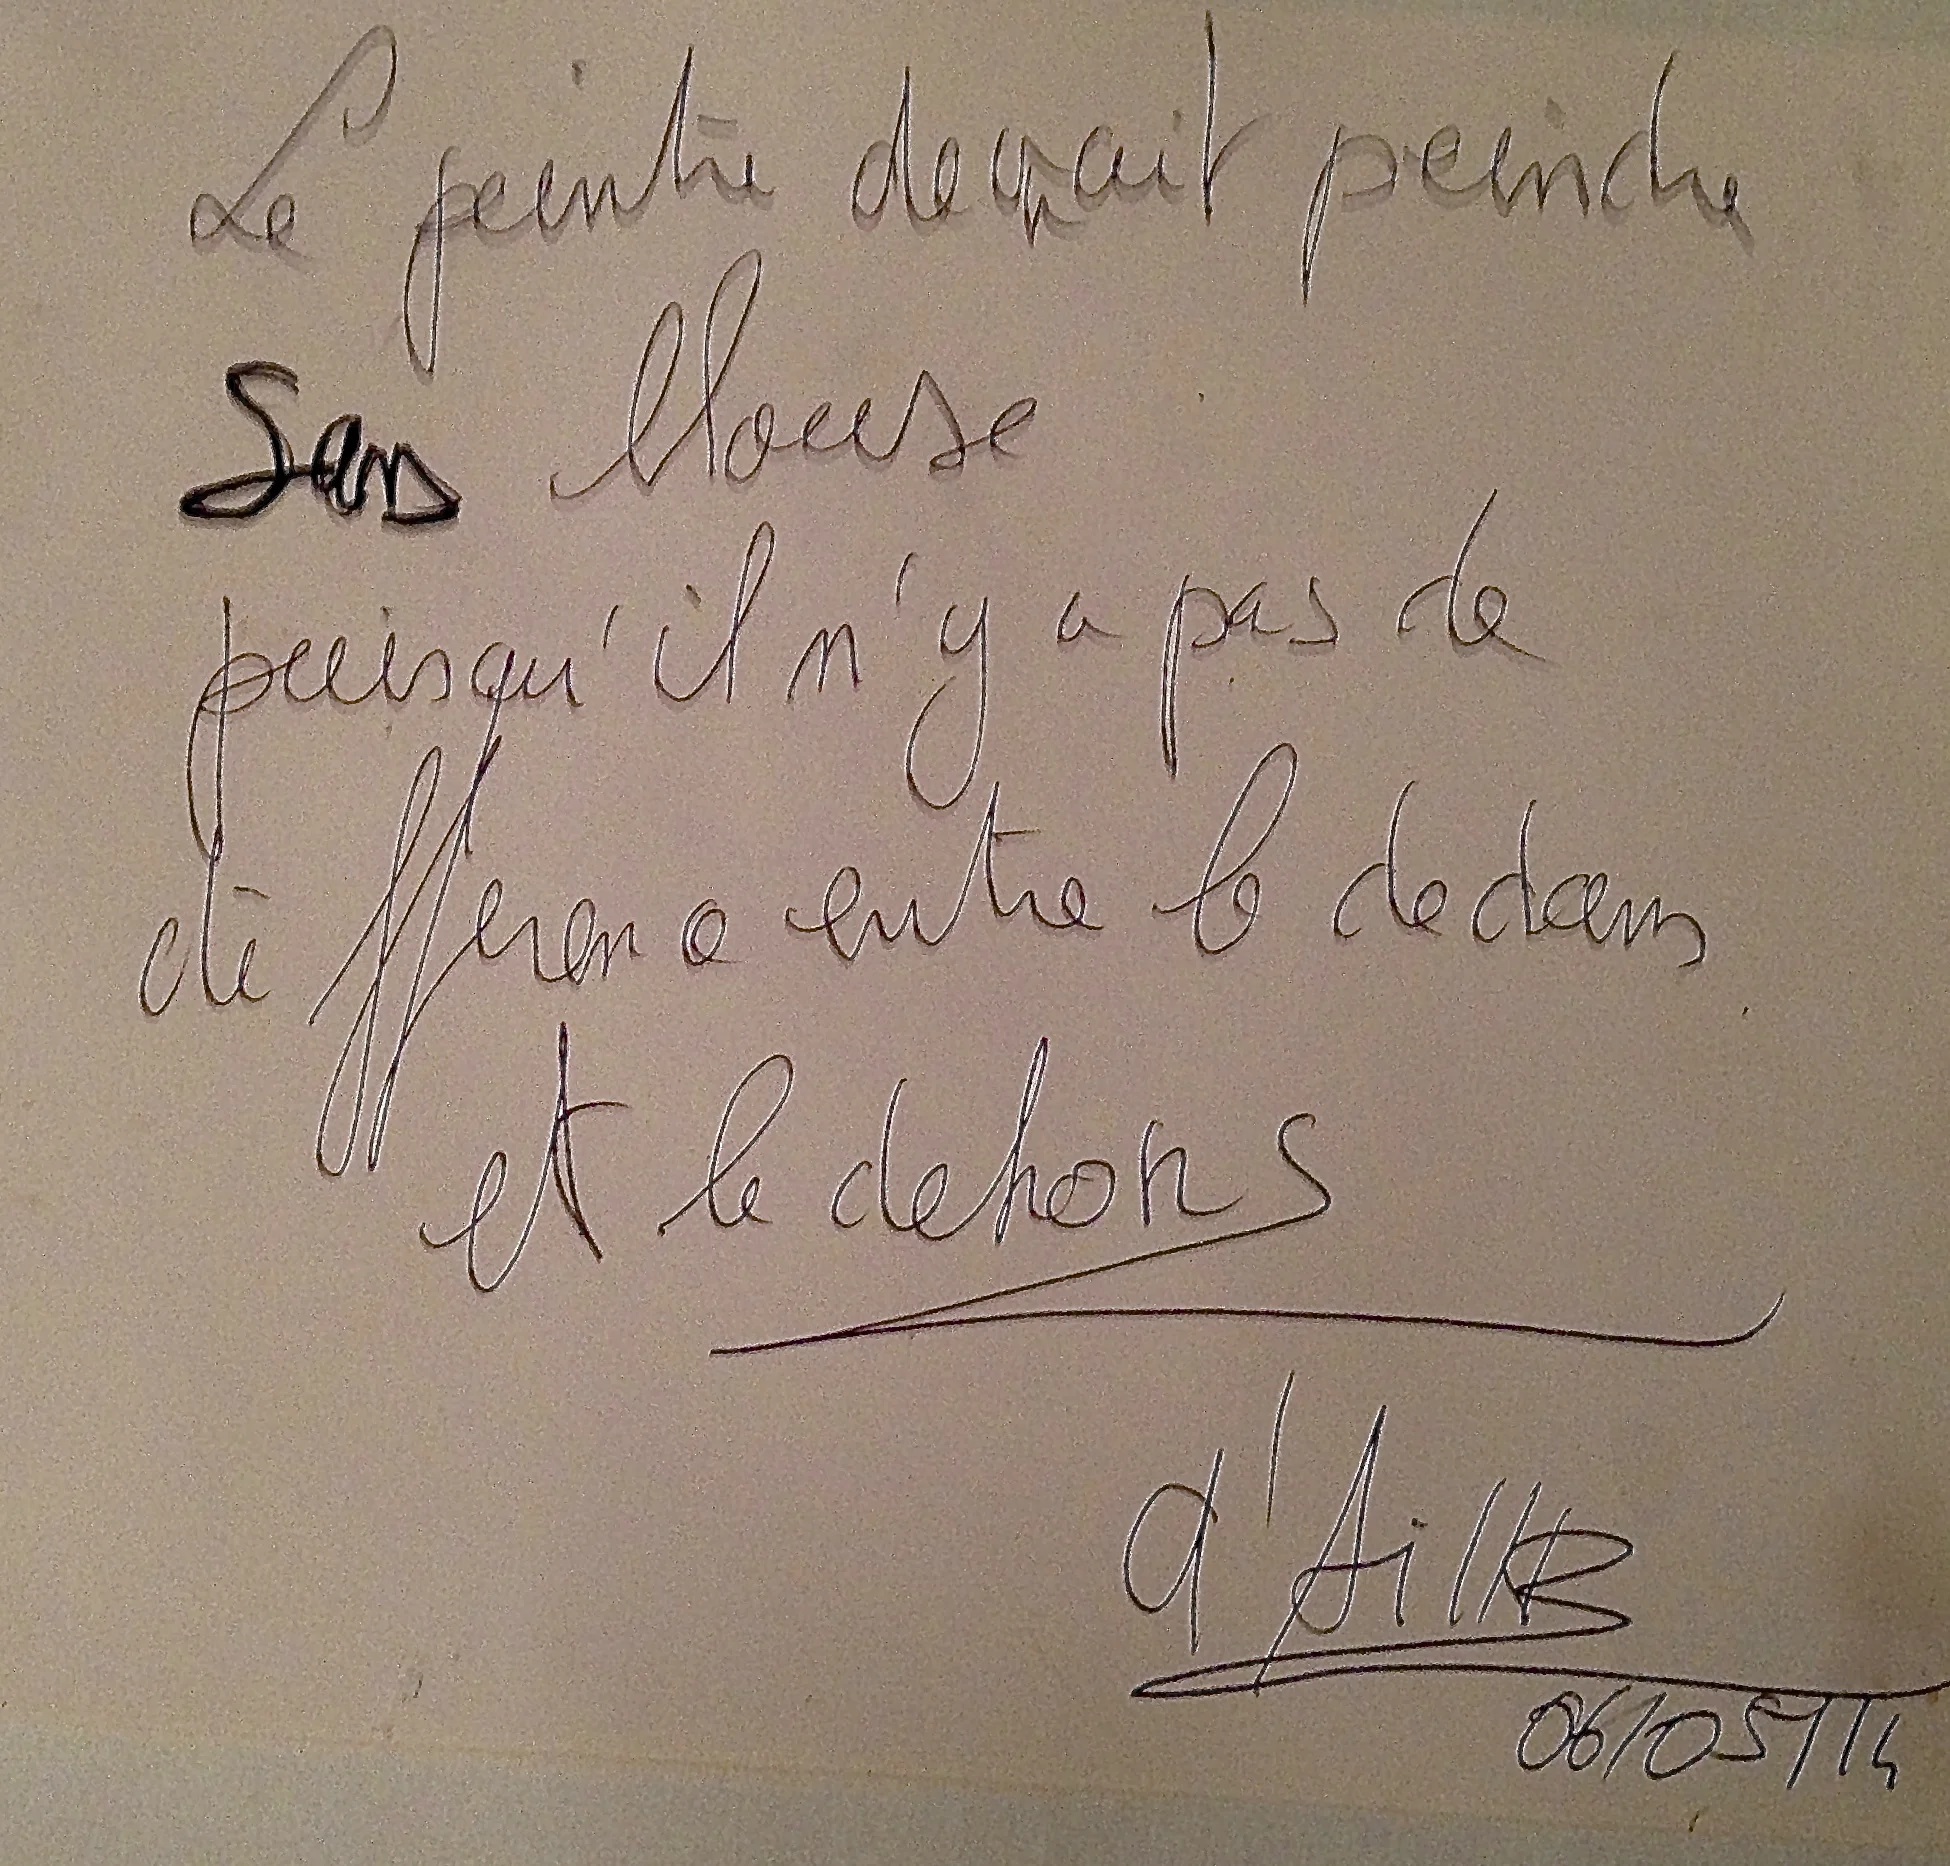 Le peintre devrait peindre
Sans blouse
puisqu'il n'y a pas de
différence entre le dedans
et le dehors
06/05/14